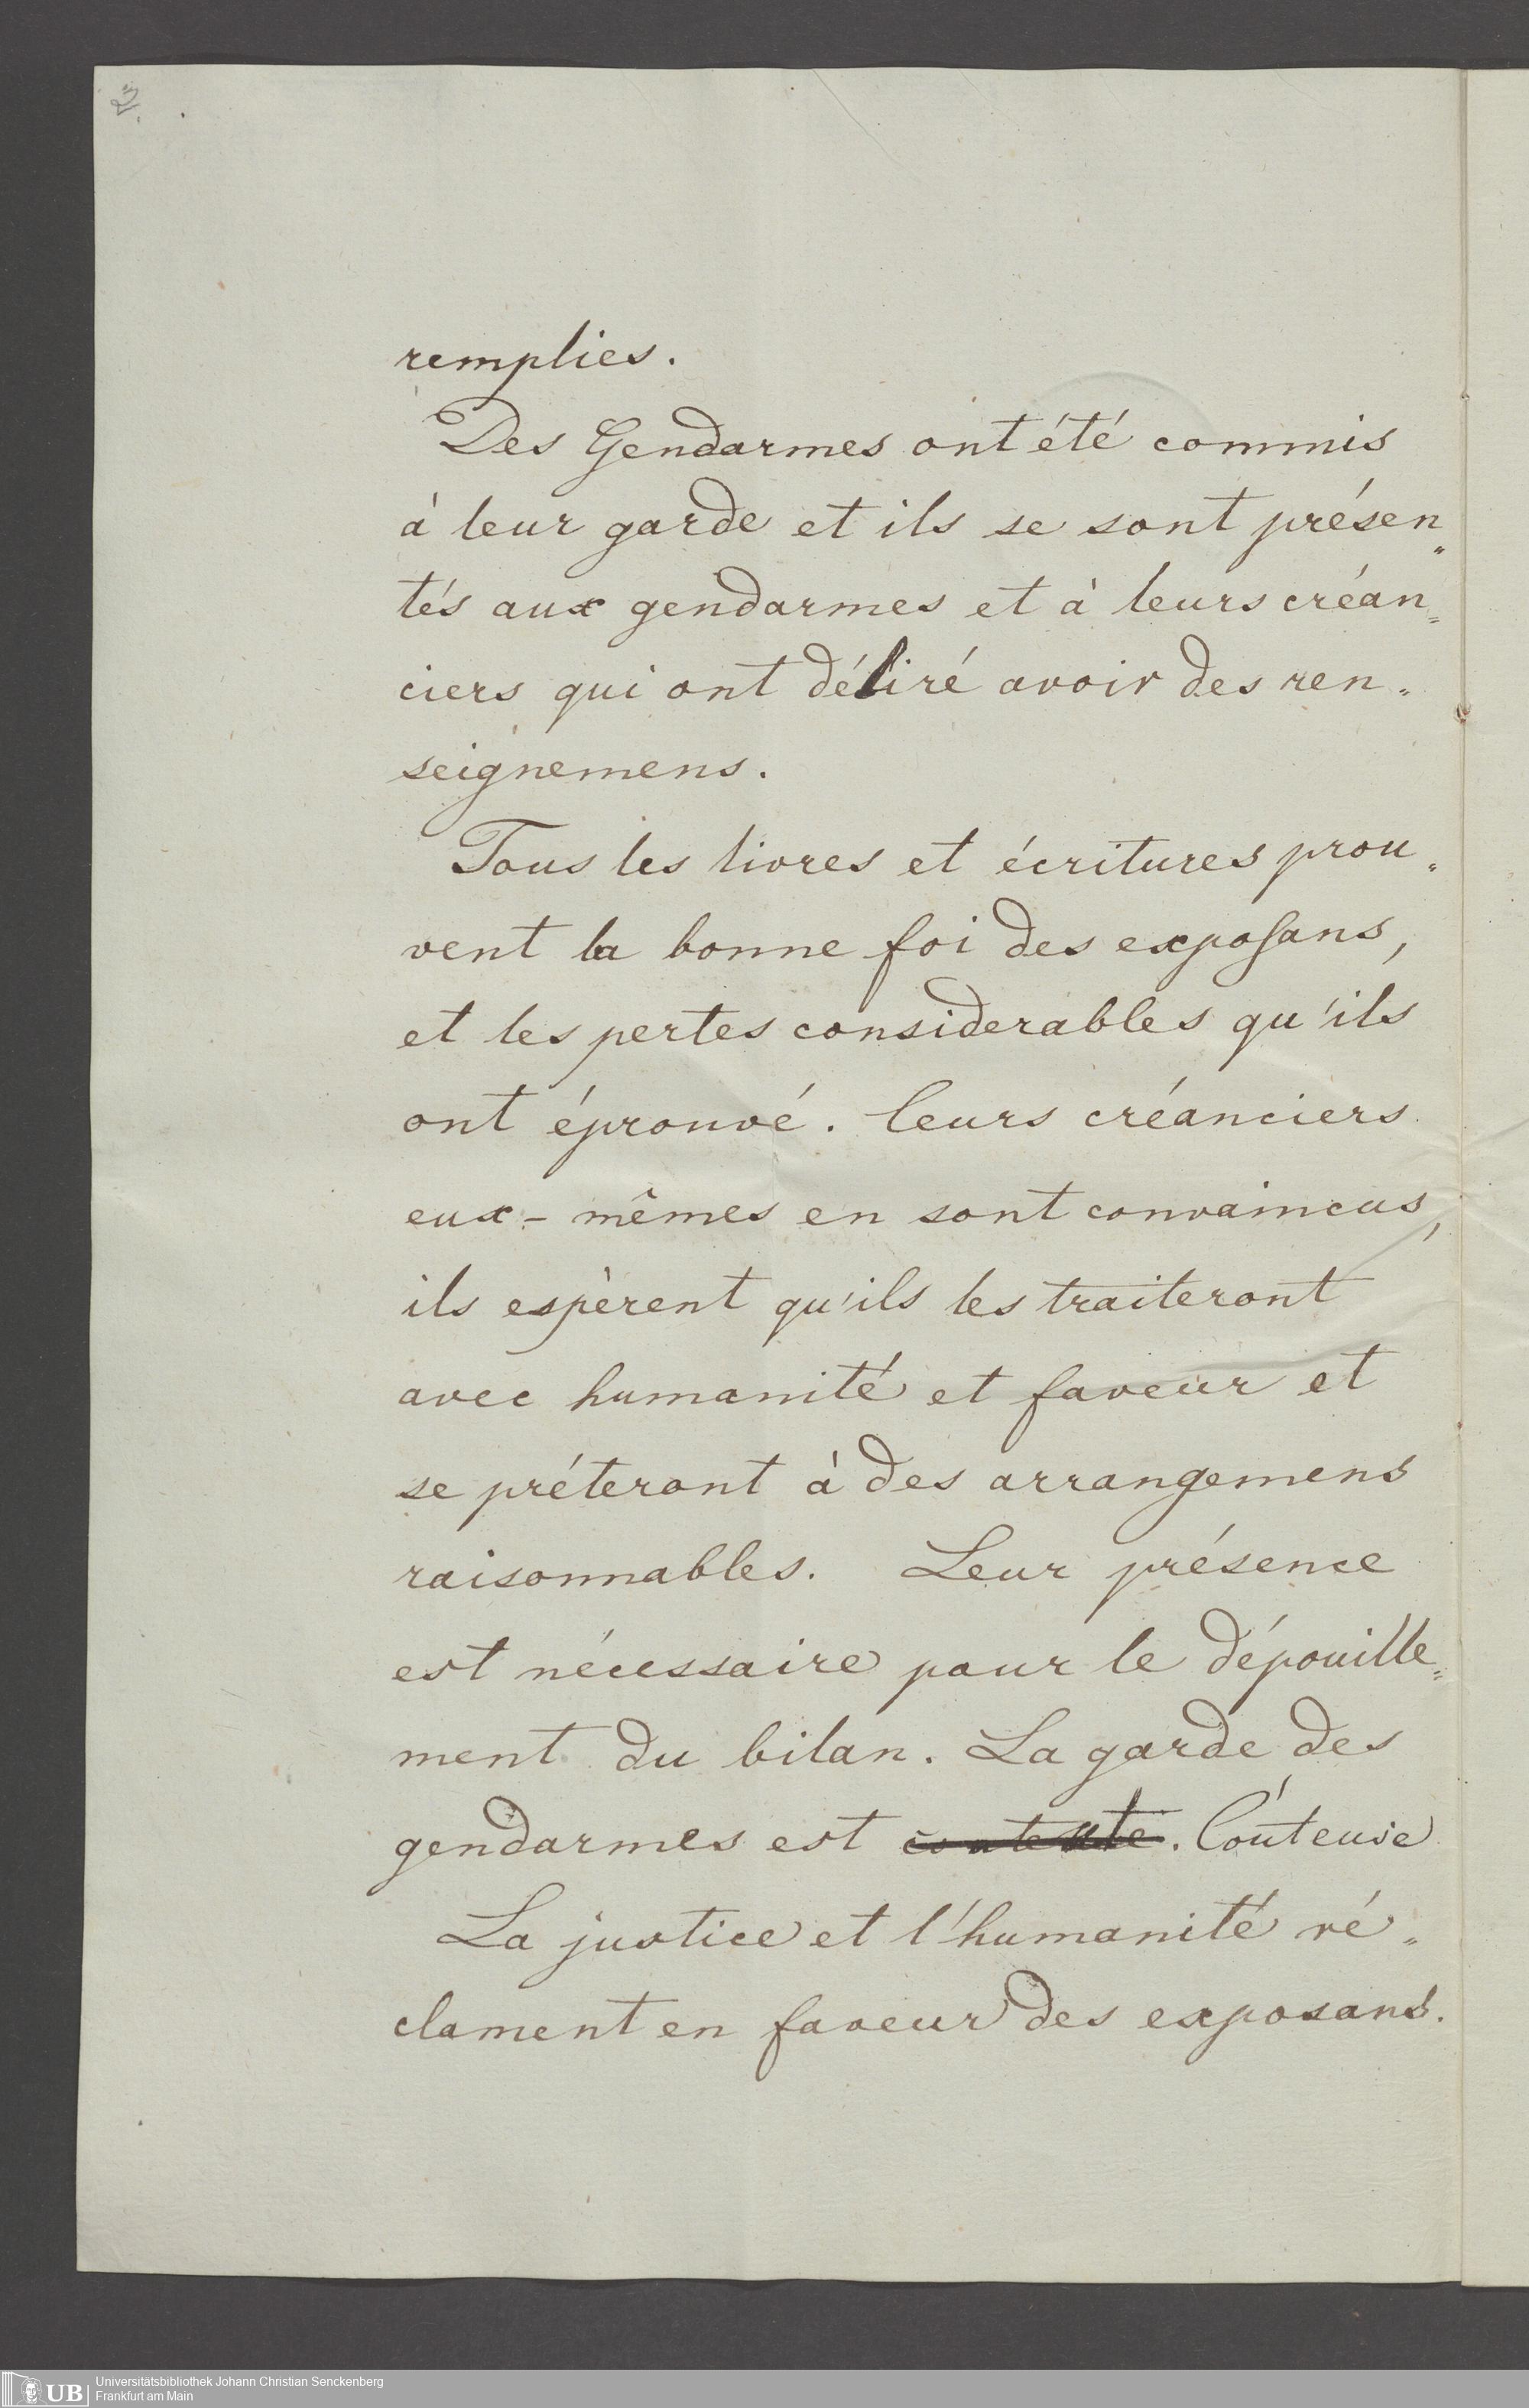 3.
remplies.
Des Gendarmes ont été commis
à leur garde et ils se sont présen„
tés aux gendarmes et à leurs créan„
ciers qui ont désiré avoir des ren„
seignemens.
Tous les livres et écritures prou„
vent la bonne foi des exposans,
et les pertes considerables qu'ils
ont éprouvé. leurs créanciers
eux-mêmes en sont convaincus,
ils espèrent qu'ils les traiteront
avec humanité et faveur et
se préteront à des arrangemens
raisonnables. Leur présence
est nécessaire pour le dépouille„
ment du bilan. La garde des
gendarmes est . Coúteuse
La justice et l'humanité ré„
clament en faveur des exposans.
UB Universitätsbibliothek Johann Christian Senckenberg
Frankfurt am Main